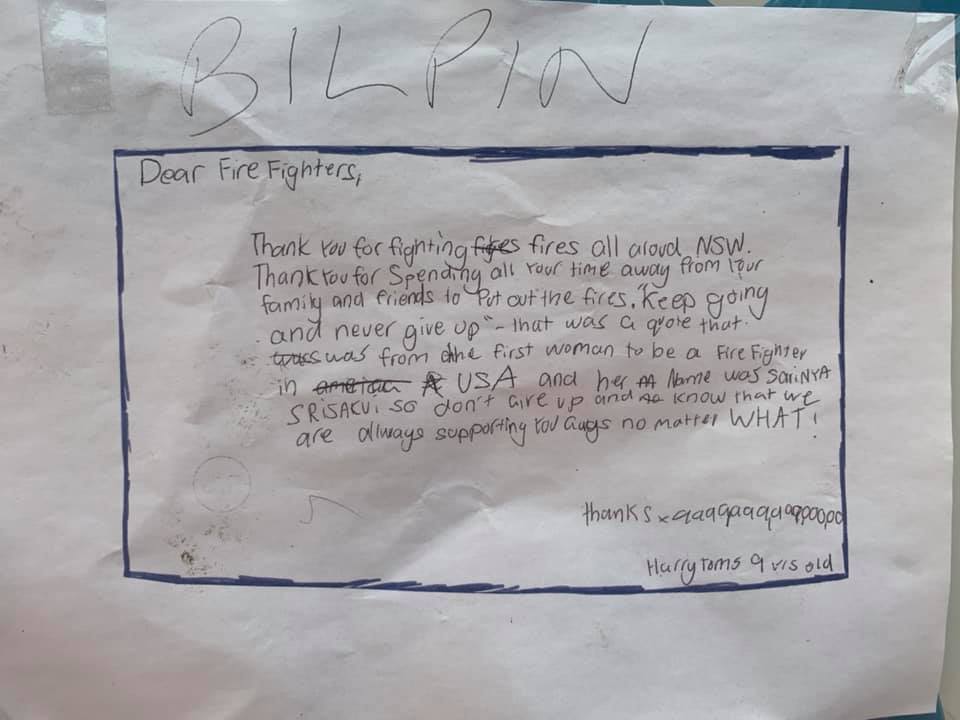 BILPIN
Dear Fire Fighters,
Thank You for fighting fires fires all aroud NSW.
Thank You for Spending all Your time away from Your
family and friends to Put out the fires. "Keep going
and never give up" - that was a quote that
was was from the first woman to be a Fire Fighter
in ameican A USA and her Name was SariNYA
SRiSAKUi so don't Give up and know that we
are always supporting You Guys no matter WHAT!
thanks x
Harry toms 9 yrs old